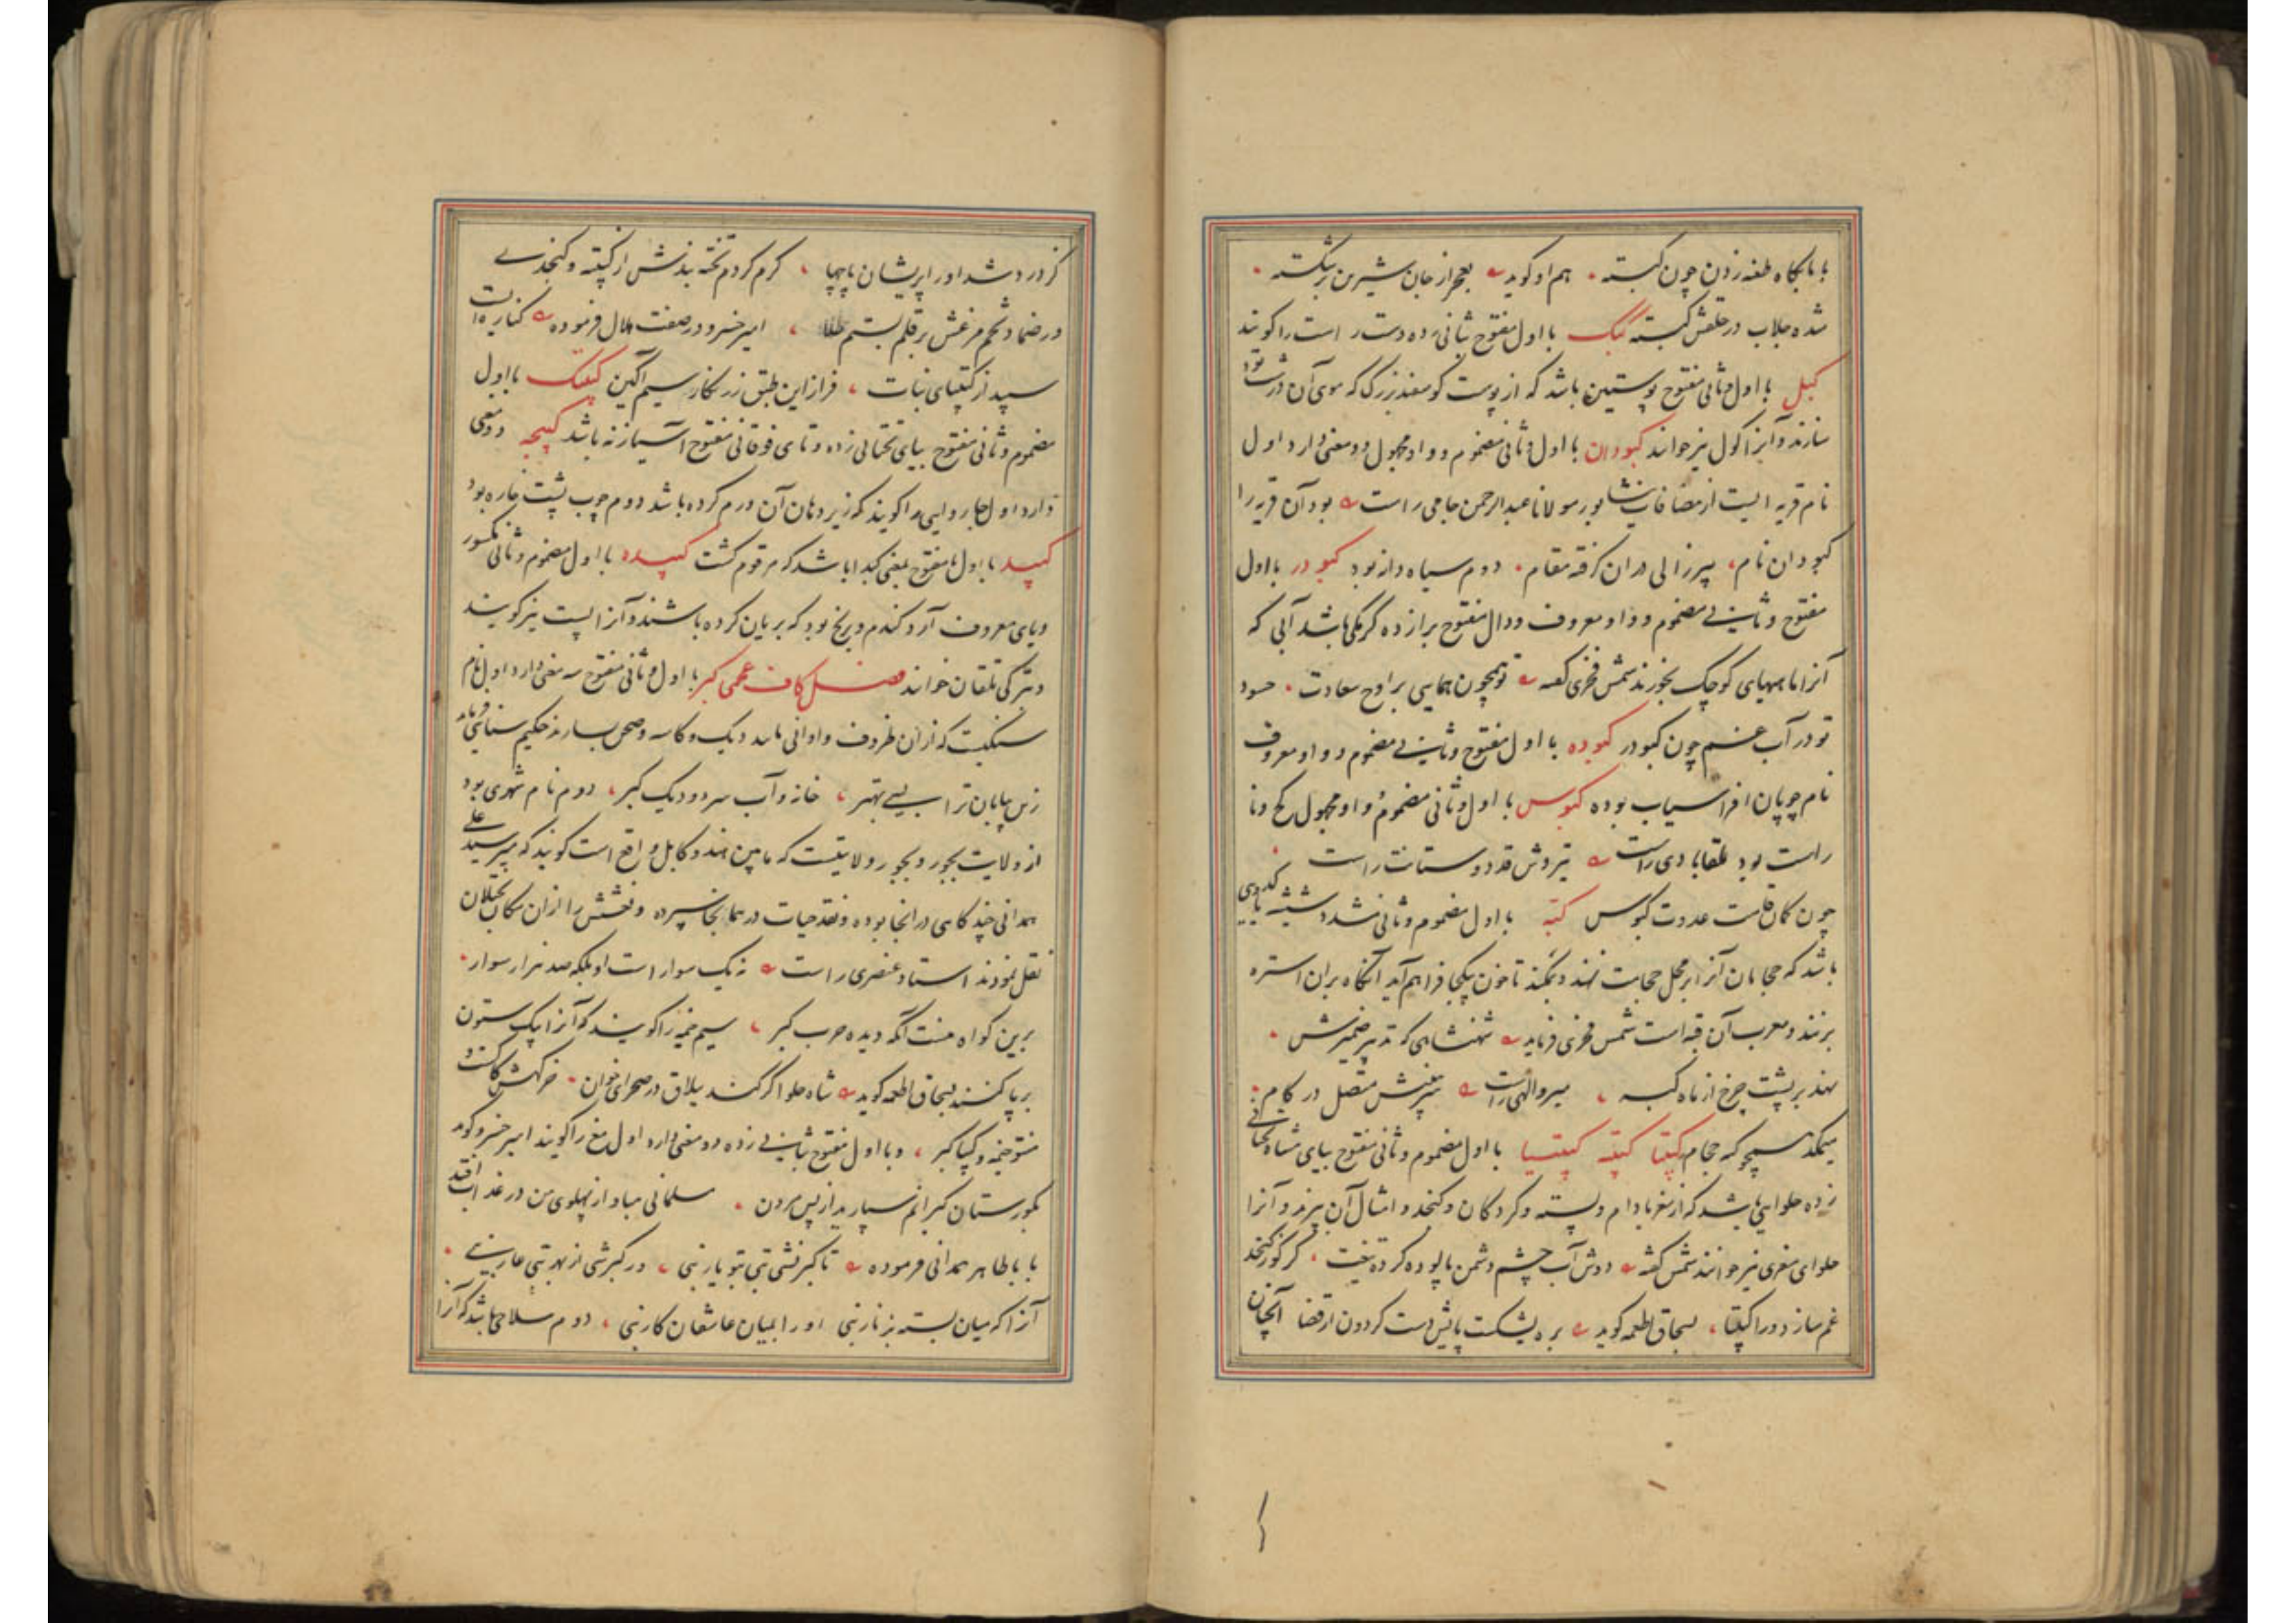 با بانگاه طعنه زدن چون کبسته هم او گوید بعجز از جان شیرین بر شکسته
شده جلاب در حلقش کبسته کبک با اول مفتوح بثانی زده دست راست را گویند
کبل با اول و ثانی مفتوح پوستین باشد که از پوست گوسفند بزرگ که موی آن درشت بود
سازند و آنرا کول نیز خوانند کبودان با اول و ثانی مضموم و واو مجهول دو معنی دارد اول
نام قریه ایست از مضافات نیشابور مولانا عبدالرحمن جامی راست بود آن قریه را
کبودان نام پیر زالی در ان گرفته مقام دوم سیاه دانه بود کبودر با اول
مفتوح و ثانی مضموم و واو معروف و دال مفتوح برا زده کرمکی باشد آبی که
آنرا ماهیهای کوچک بخورند شمس فخری گفته تو همچون همایی بر اوج سعادت حسود
تو در آب غم چون کبودر کبوده با اول مفتوح و ثانی مضموم و واو معروف
نام چوپان افراسیاب بوده کبوس با اول و ثانی مضموم و واو مجهول کج و نا
راست بود طقابادی راست تیروش قد دوستانت راست
چون کمان قامت عدوت کبوس کبه با اول مضموم و ثانی مشدد شیشه یا کدویی
باشد که حجامان آنرا بر محل حجامت نهند و بمکند تا خون یکجا فراهم آید آنگاه بران استره
برنند و معرب آن قبه است شمس فخری فرماید شهنشاهی که تدبیر ضمیرش
نهد بر پشت چرخ از ماه کبه میر والهی راست متصل در کام
میمکد همچو که حجام کبیتا کبیته کبیتسیا با اول مضموم و ثانی مفتوح بیای مثناة تحتانی
زده حلوایی باشد که از مغز بادام و پسته و گردکان و کنجد و امثال آن پزند و آنرا
حلوای مغزی نیز خوانند شمس گفته دوش آب چشم دشمن پالوده کرد تیغت گر گوز کنجد
غم سازد ورا کبیتا بسحاق اطعمه گوید بره بشکست پایش دست گردون از قضا آنچنان
کز درد شد او را پریشان پاچها گرم کردم تخته بندش از کبیته و کنجدی
در ضماد تخم مرغش بر قلم بستم طلا امیر خسرو در صفت هلال فرموده کناریست
سپید از کبیتهای نبات فراز این طبق زرنگار سیم آگین کبیتک با اول
مضموم و ثانی مفتوح بیای تحتانی زده و تای فوقانی مفتوح آسیازنه باشد کبیجه دو معنی
دارد اول چاروایی را گویند که زیر دهان آن ورم کرده باشد دوم چوب پشت خاره بود
کبید با اول مفتوح بمعنی کبد باشد که مرقوم گشت کبیده با اول مضموم و ثانی مکسور
و یای معروف آرد گندم و برنج بود که بریان کرده باشند و آنرا پست نیز گویند
و بترکی تلقان خوانند فصل کاف عجمی گبر با اول و ثانی مفتوح سه معنی دارد اول نام
سنگیست که از ان ظروف و اوانی مانند دیک و کاسه و صحن سازند حکیم سنایی فرماید
زین بیابان ترا بسی بهتر خانه و آب سرد و دیک گبر دوم نام شهری بود
از ولایت بجور و بجور ولایتست که مابین هند و کابل واقع است گویند که میر سید علی
همدانی چند گاهی در آنجا بوده و نقد حیات در همانجا سپرده و نعشش را از ان مکان بختلان
نقل نمودند استاد عنصری راست نه یک سوار است او بلکه صد هزار سوار
برین گواه منست آنکه دیده حرب گبر سیم خیمه را گویند که آنرا بیک ستون
بر پا کنند بسحاق اطعمه گوید شاه حلوا گر کند ییلاق در صحرای خوان
خیمه و کپپا گبر و با اول مفتوح بثانی زده دو معنی دارد اول مغ را گویند امیر خسرو گوید
بگورستان گبرانم سپارید از پس مردن مسلمانی مباد از پهلوی من در عذاب افتد
بابا طاهر همدانی فرموده تا گبر نشی بتی بتو یار نبی ور گبر شی از بهر بتی عار نبی
آنرا که میان بسته بزنار نبی او را بمیان عاشقان کار نبی دوم سلاحی باشد که آنرا